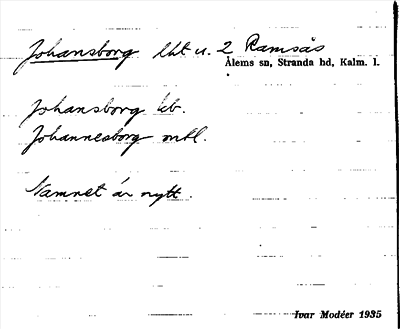 Johansborg lht u. 2 Ramsås
Ålems sn, Stranda hd, Kalm. l.
Johansborg kb.
Johannesborg mtl.
Namnet är nytt.
Ivar Modéer 1935